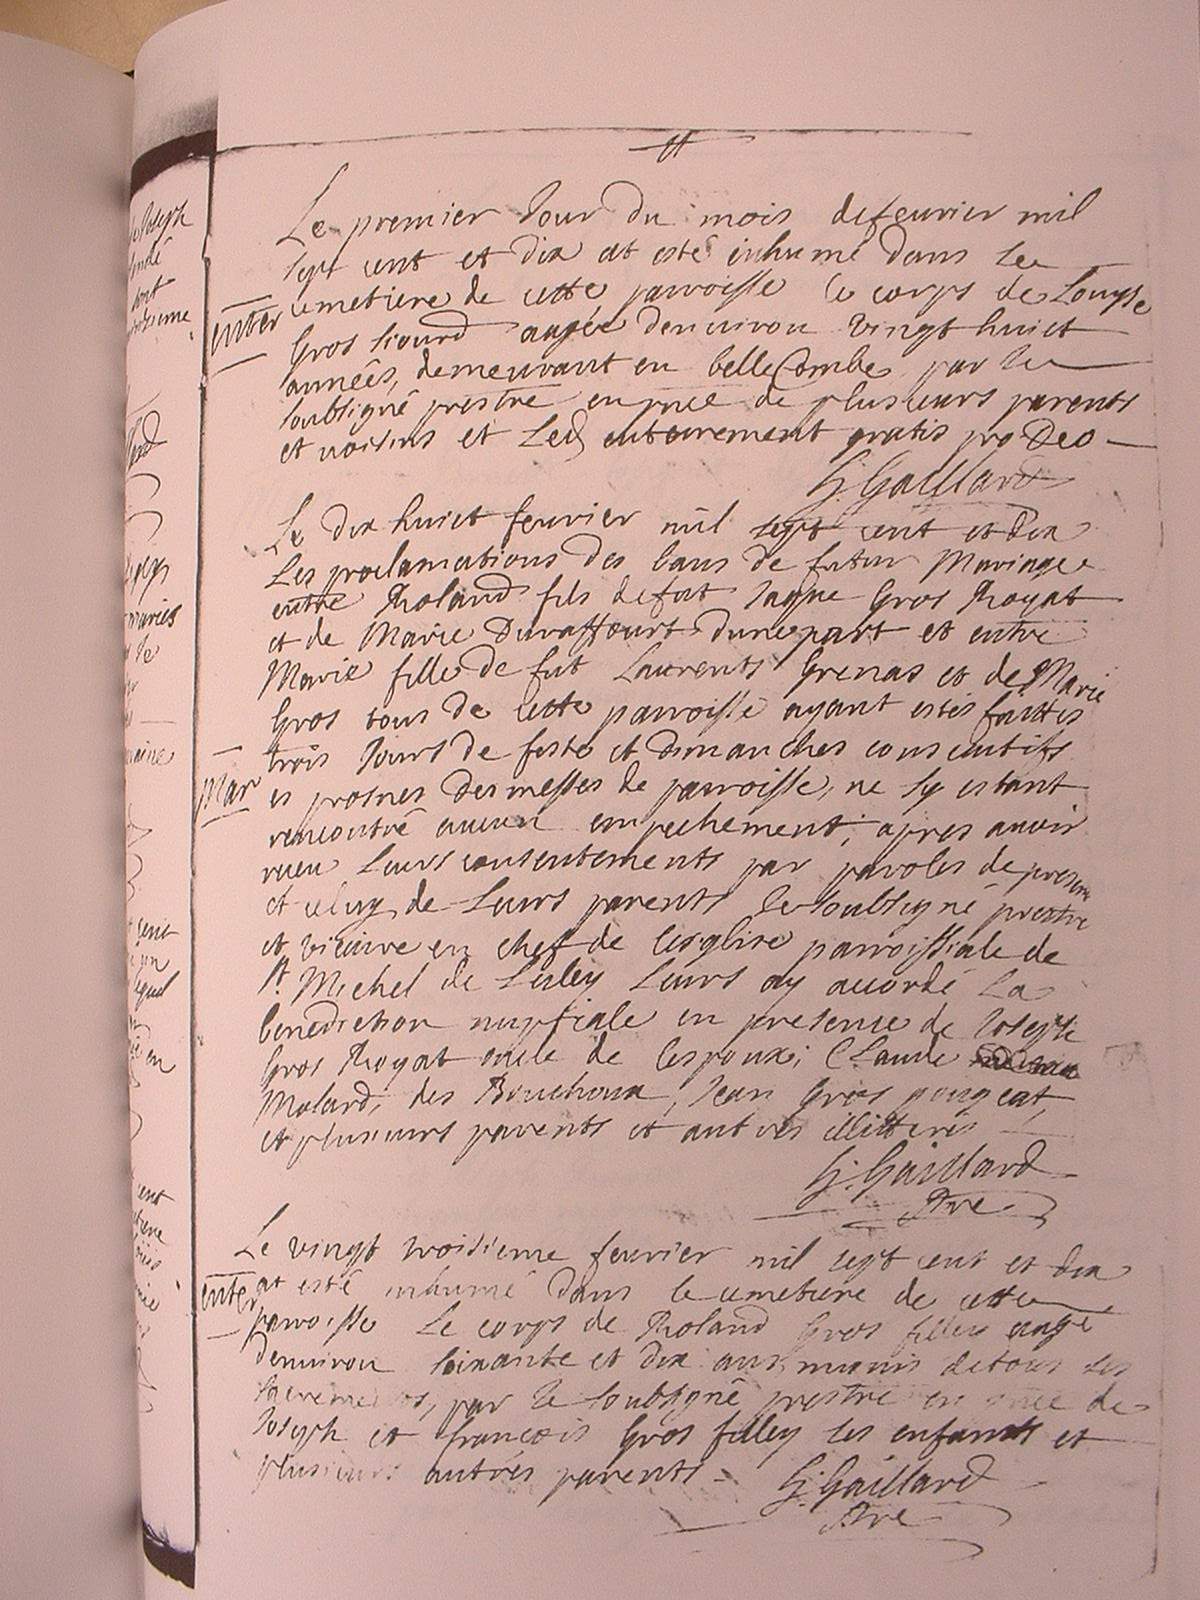 Le premier Jour du mois de feurier mil
sept cent et dix at esté inhumé dans le
cemetiere de cette parroisse le corps de Louyse
enter
Gros sigurd augée denuiron vingt huict
années, demeurant en belleCombe par le
soubsigné prestre en pnce de plusieurs parents
et uoisins et Led enterrement gratis pro Deo
G. Gaillard
Le dix huict feurier mil sept cent et dix
Les proclamations des bans de futur Mariage
entre Roland fils de fut Jaque Gros Royat
et de Marie Duraffourt dune part et entre
Marie fille de fut Laurents Grenas et de Marie
Gros tous de cette parroisse ayant estés faittes
trois Jours de feste et dimanches consecutifs
Mar
es prosnes des messes de parroisse, ne sy estant
rencontré aucun empechement; apres auoir
receu Leurs consentements par paroles de present
et celuy de Leurs parents Je soubsigné prestre
et vicaire en chef de Lesglise parroissiale de
st Michel de Lesley Leurs ay accordé La
benediction nuptiale en presence de Joseph
Gros Royat oncle de Lespoux; Claude
Molard, des Bouchoux, Jean Gros pougeat,
et plusieurs parents et autres illitterés
G. Gaillard
Ptre
Le vingt troisieme feurier mil sept cent et dix
enter
at esté inhumé dans le cemetiere de cette
parroisse Le corps de Roland Gros filley augé
denuiron soixante et dix ans munis de tous les
sacrements, par le soubsigné prestre en pnce de
Joseph et francois Gros filley ses enfants et
plusieurs autres parents
G. Gaillard
Ptre